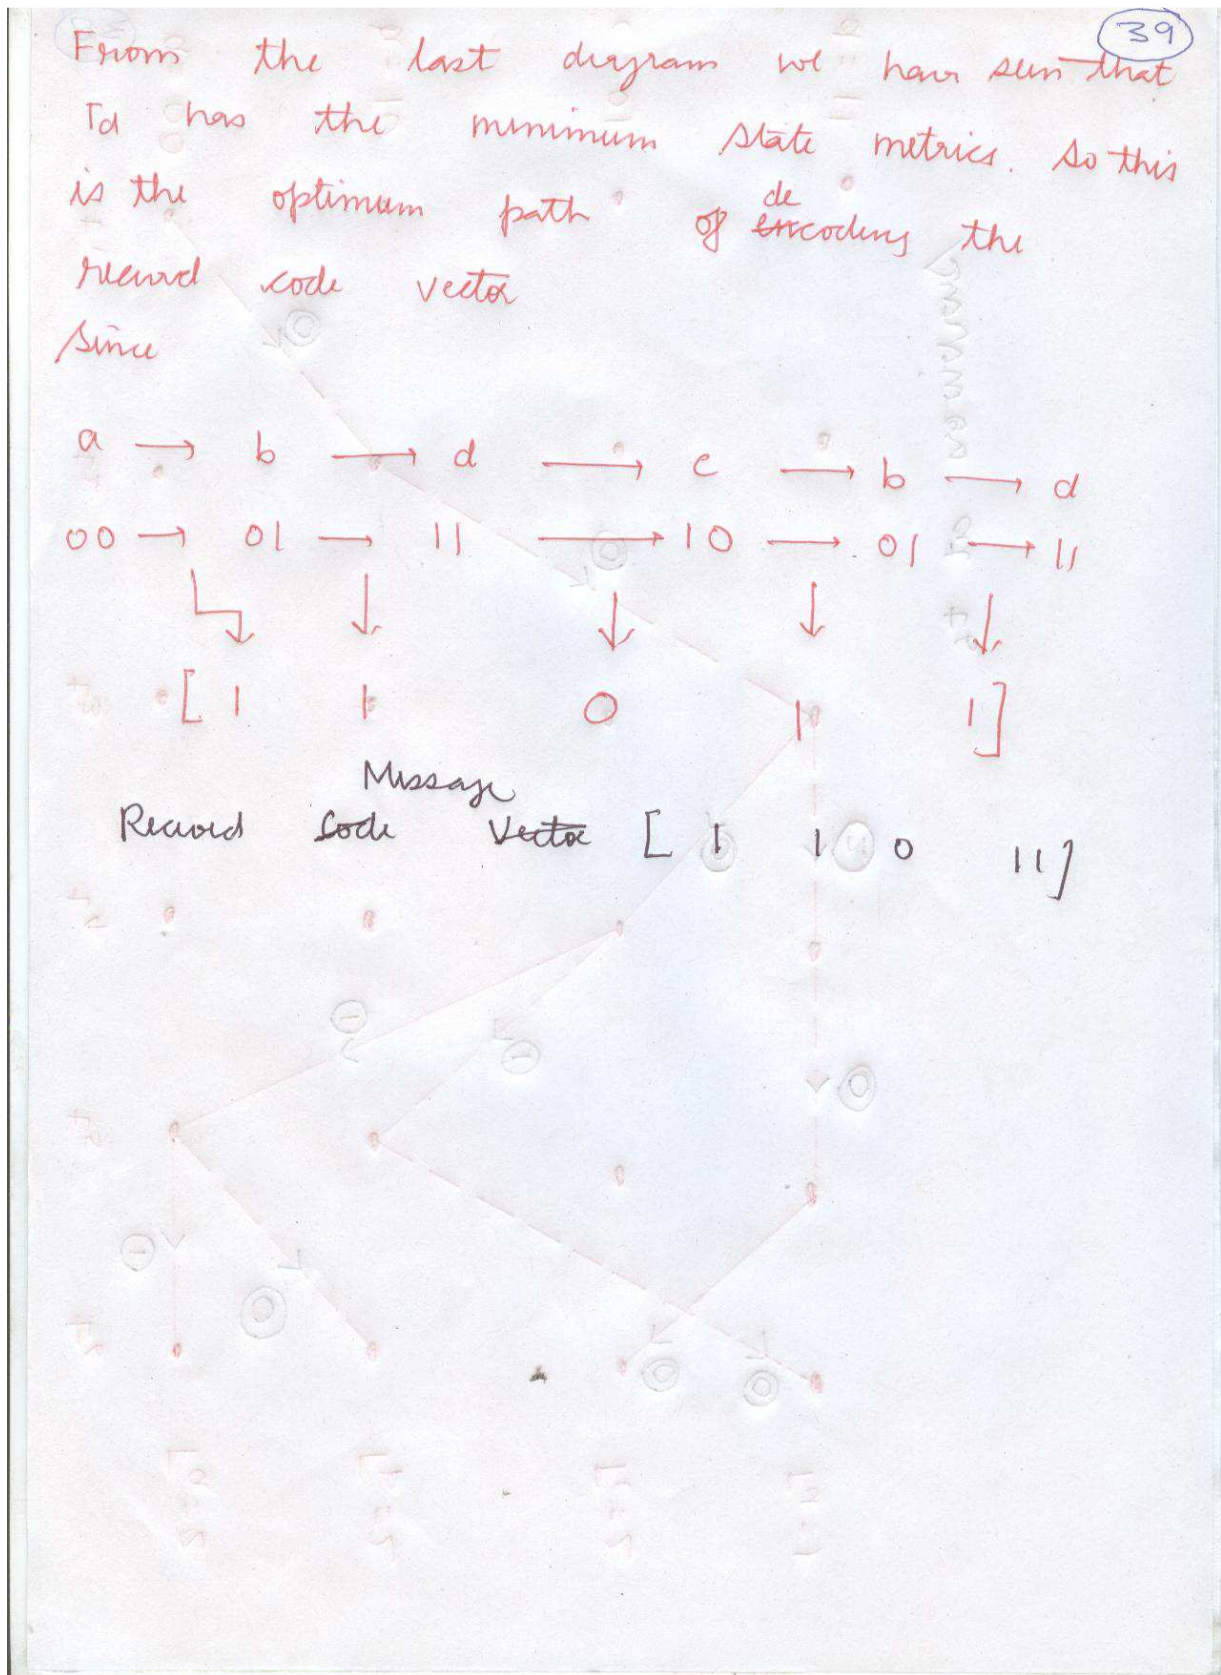 39
From the last diagram we have seen that
Γd has the minimum state metrics. So this
is the optimum path of decoding the
received code vector
Since
a → b → d → c → b → d
00 → 01 → 11 → 10 → 01 → 11
[ 1 1 0 1 1 ]
Message
Received Code Vector [ 1 1 0 11 ]